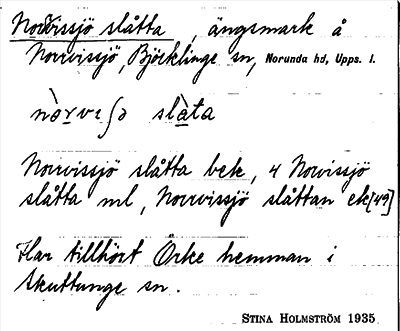 Norrvissjö slåtta, ängsmark å
Norrvissjö, Björklinge sn, Norunda hd, Upps. l.
slåta
Norrvissjö slåtta bek, 4 Norvissjö
slåtta ml, Norrvissjö slåttan ek[49]
Har tillhört Örke hemman i
Skuttunge sn.
STINA HOLMSTRÖM 1935